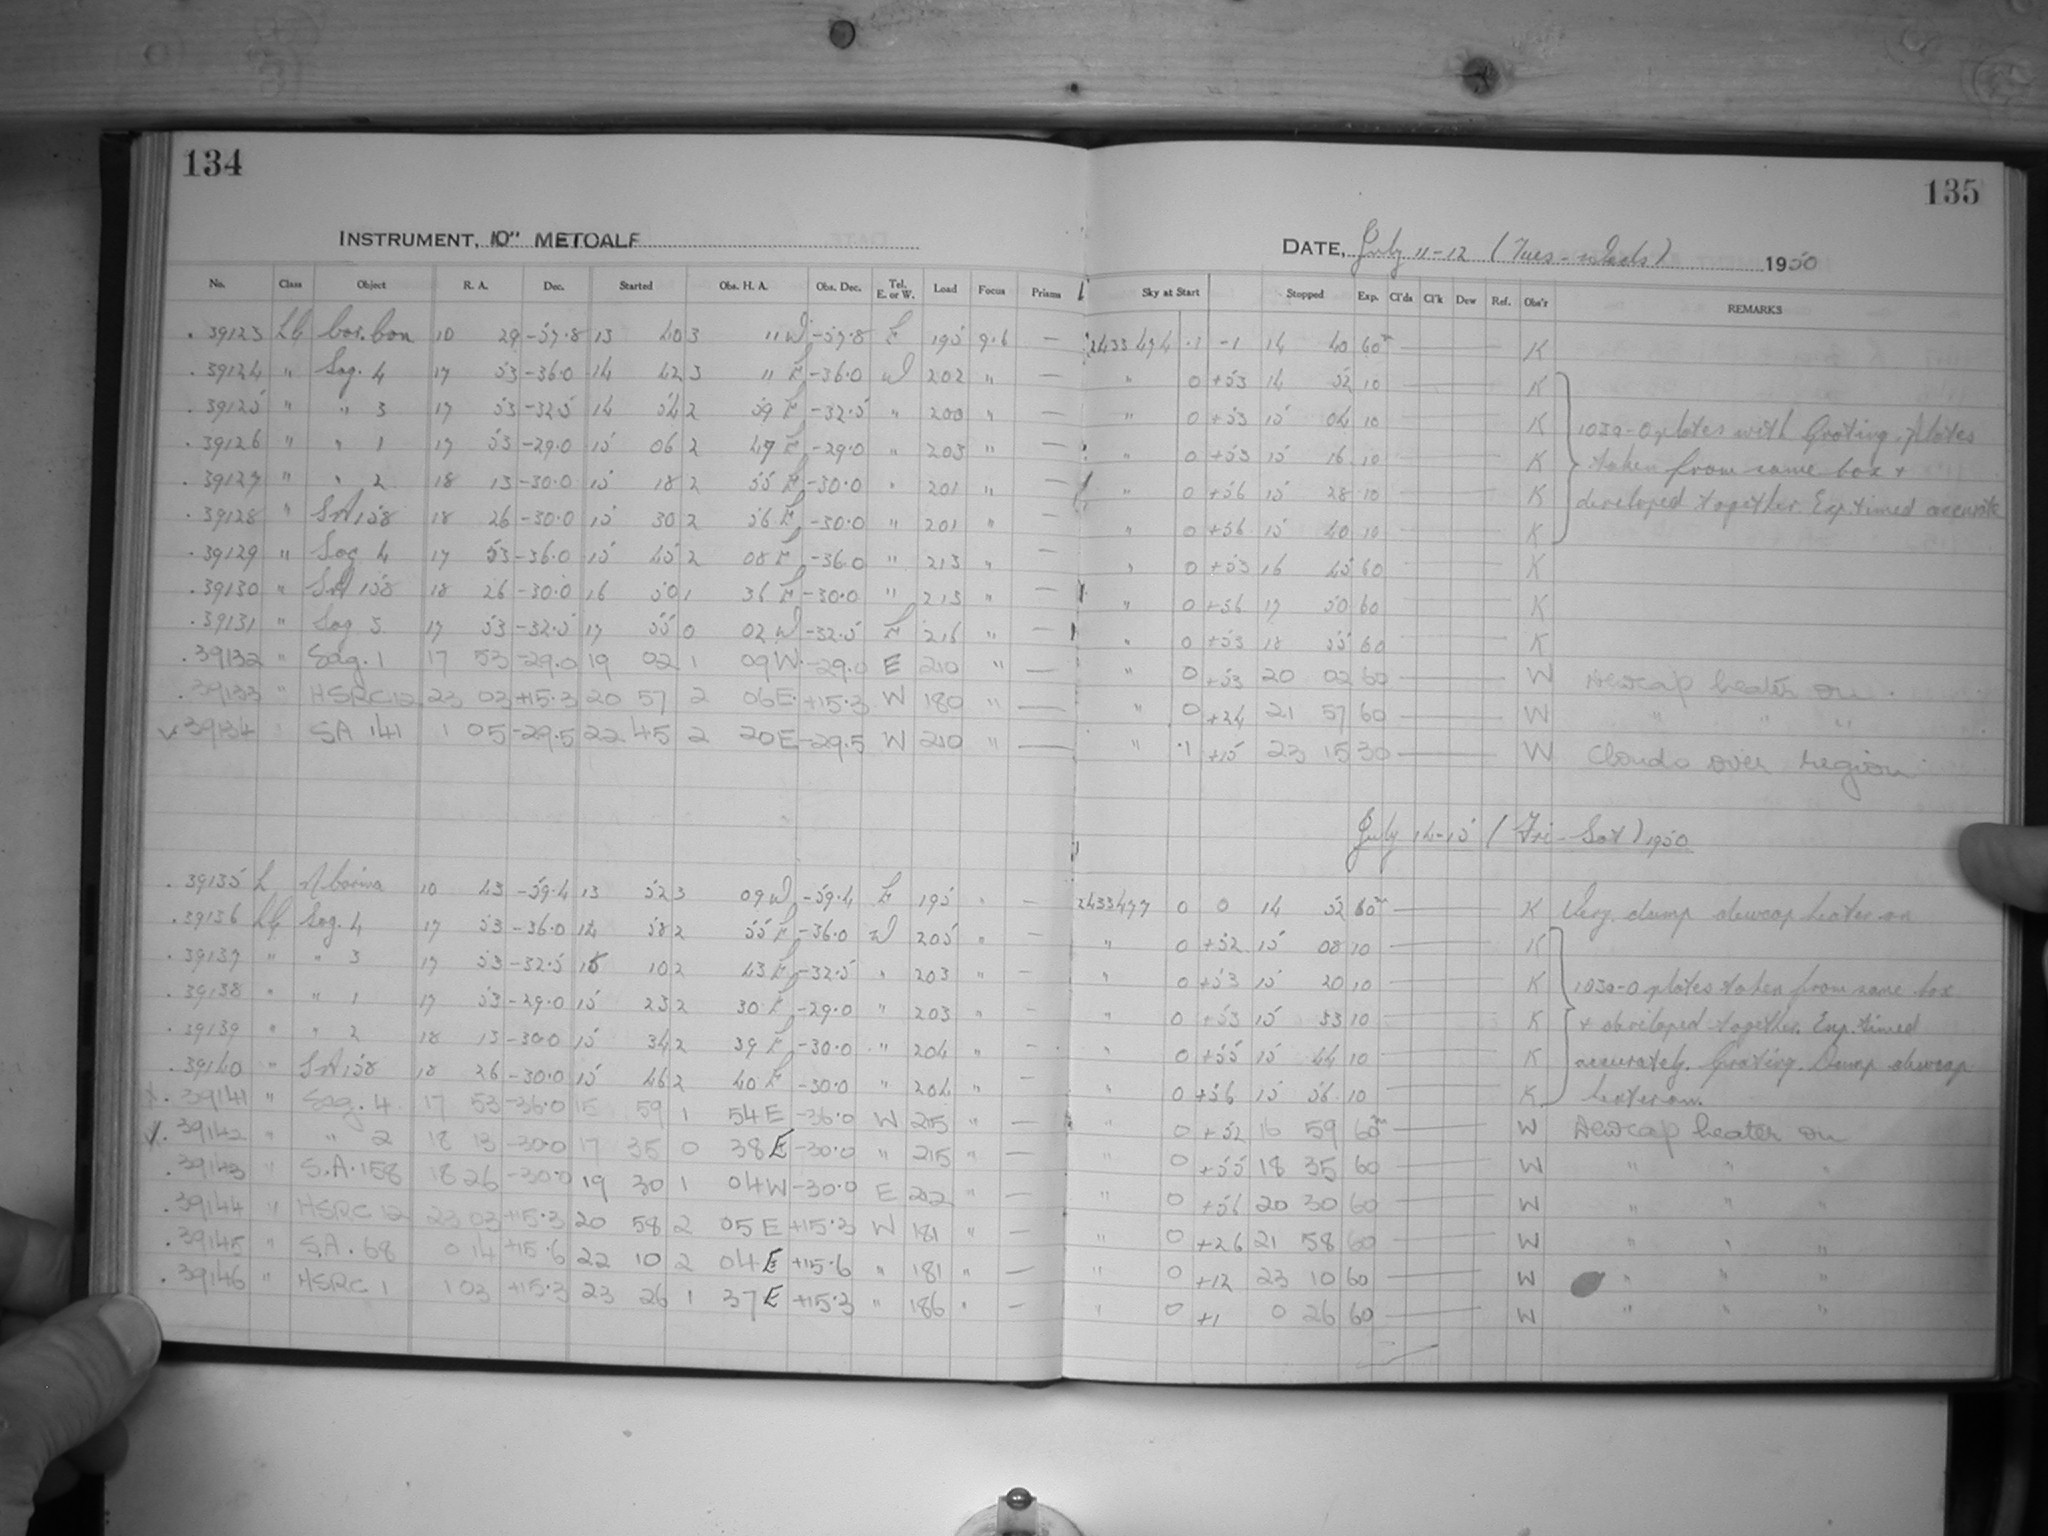 134
135
INSTRUMENT, 10" METCALF
DATE, July 11-12 (Tues-Weds) 1950
No. Class Object R. A. Dec. Started Obs. H. A. Obs. Dec. Tel. E. or W. Load Focus Prisms Sky at Start Stopped Exp. Cl'ds Cl'k Dew Ref. Obs'r REMARKS
39123 LG Car. bon 10 29 -57.8 13 40 3 11 W -57.8 E 195 9.6 — 2433474 .1 -1 14 40 60m K
39124 " Sag. 4 17 53 -36.0 14 42 3 11 E -36.0 W 202 " — " 0 +53 14 52 10 K
39125 " " 3 17 53 -32.5 14 54 2 59 E -32.5 " 200 " — " 0 +53 15 04 10 K 1030-O plates with Grating. Plates
39126 " " 1 17 53 -29.0 15 06 2 47 E -29.0 " 203 " — " 0 +53 15 16 10 K taken from same box +
39127 " " 2 18 13 -30.0 15 18 2 55 E -30.0 " 201 " — " 0 +56 15 28 10 K developed together. Exp. timed accurate
39128 " SA 158 18 26 -30.0 15 30 2 56 E -30.0 " 201 " — " 0 +56 15 40 10 K
39129 " Sag 4 17 53 -36.0 15 45 2 08 E -36.0 " 213 " — " 0 +53 16 45 60 K
39130 " SA 158 18 26 -30.0 16 50 1 36 E -30.0 " 213 " — " 0 +56 17 50 60 K
39131 " Sag 3 17 53 -32.5 17 55 0 02 W -32.5 E 216 " — " 0 +53 18 55 60 K
39132 " Sag. 1 17 53 -29.0 19 02 1 09 W -29.0 E 210 " — " 0 +53 20 02 60 W Dewcap heater on.
39133 " HSRC 12 23 03 +15.3 20 57 2 06 E +15.3 W 180 " — " 0 +24 21 57 60 W " " "
39134 " SA 141 1 05 -29.5 22 45 2 20 E -29.5 W 210 " — " .1 +15 23 15 30 W Clouds over region
July 14-15 (Fri-Sat) 1950
39135 L 10 43 -59.4 13 52 3 09 W -59.4 E 195 " — 2433477 0 0 14 52 60m K Very damp dewcap heater on
39136 LG Sag. 4 17 53 -36.0 14 58 2 55 E -36.0 W 205 " — " 0 +52 15 08 10 K
39137 " " 3 17 53 -32.5 15 10 2 43 E -32.5 " 203 " — " 0 +53 15 20 10 K 1030-O plates taken from same box
39138 " " 1 17 53 -29.0 15 23 2 30 E -29.0 " 203 " — " 0 +53 15 33 10 K + developed together. Exp. timed
39139 " " 2 18 13 -30.0 15 34 2 39 E -30.0 " 204 " — " 0 +55 15 44 10 K accurately. Grating. Damp dewcap
39140 " SA 158 18 26 -30.0 15 46 2 40 E -30.0 " 204 " — " 0 +56 15 56 10 K heater on.
39141 " Sag. 4 17 53 -36.0 15 59 1 54 E -36.0 W 215 " — " 0 +52 16 59 60m W Dewcap heater on
39142 " " 2 18 13 -30.0 17 35 0 38 E -30.0 " 215 " — " 0 +55 18 35 60 W " " "
39143 " S.A. 158 18 26 -30.0 19 30 1 04 W -30.0 E 202 " — " 0 +56 20 30 60 W " " "
39144 " HSRC 12 23 03 +15.3 20 58 2 05 E +15.3 W 181 " — " 0 +26 21 58 60 W " " "
39145 " S.A. 68 0 14 +15.6 22 10 2 04 E +15.6 " 181 " — " 0 +12 23 10 60 W " " "
39146 " HSRC 1 1 03 +15.3 23 26 1 37 E +15.3 " 186 " — " 0 +1 0 26 60 W " " "